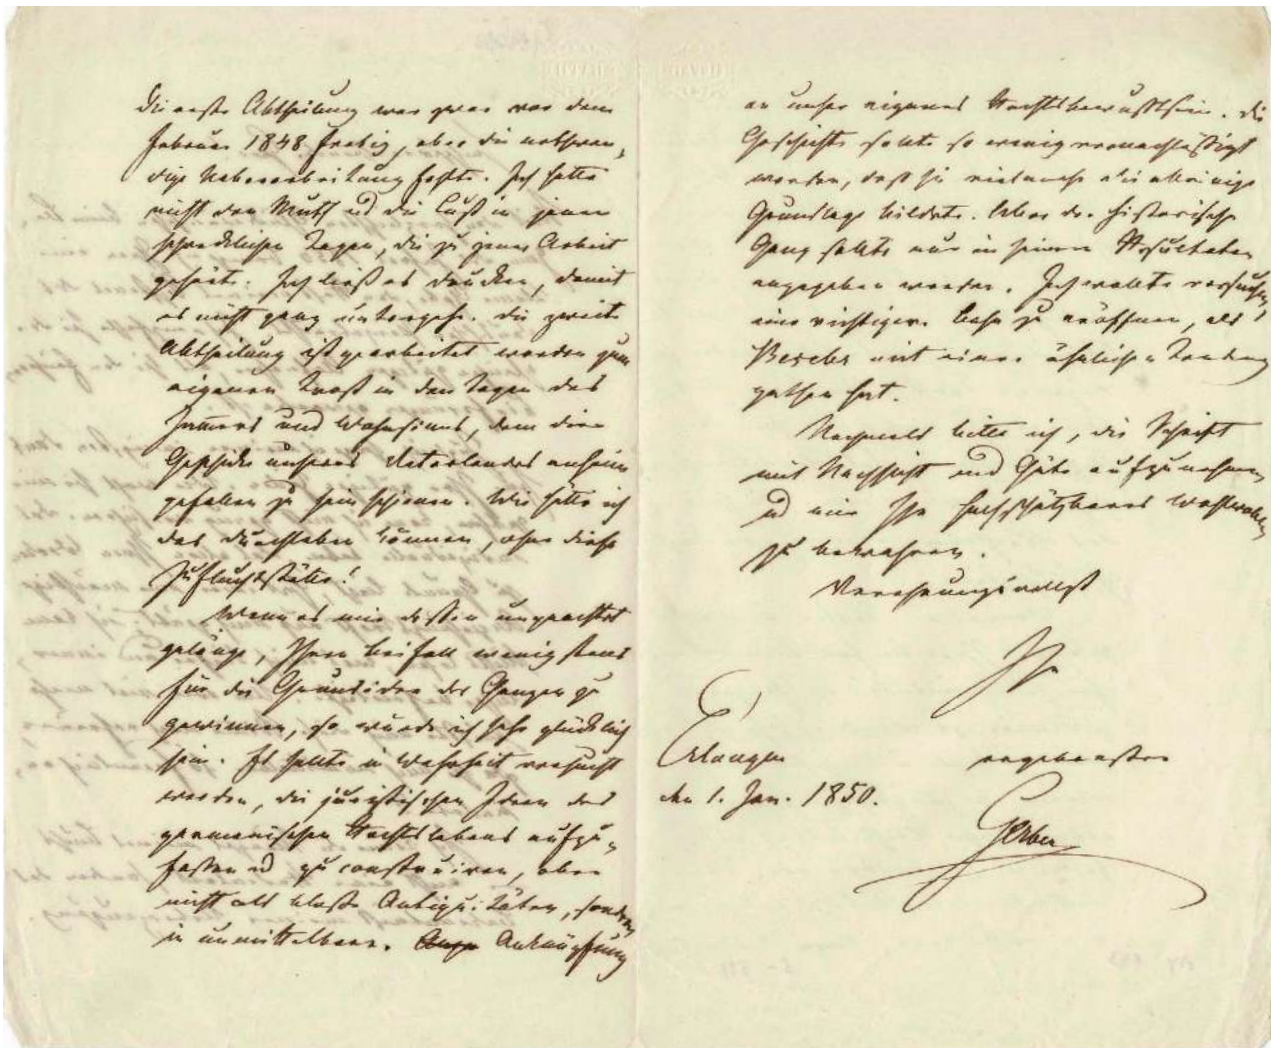 Die erste Abtheilung war zwar vor dem
Februar 1848 fertig, aber die nothwen-
dige Ueberarbeitung fehlte. Ich hatte
nicht den Muth und die Lust in jenen
schrecklichen Tagen, die zu jener Arbeit
gehört. Ich ließ es drucken, damit
es nicht ganz untergehe. Die zweite
Abtheilung ist gearbeitet worden zum
eigenen Trost in den Tagen des
Jammers und Wahnsinns, dem die
Geschicke unseres Vaterlandes anheim
gefallen zu sein schienen. Wie hätte ich
das durchleben können, ohne diese
Zufluchtsstätte!
Wenn es mir dessen ungeachtet
gelänge, Ihren Beifall wenigstens
für die Grundidee des Ganzen zu
gewinnen, so würde ich sehr glücklich
sein. Es sollte in Wahrheit versucht
werden, die juristischen Ideen des
germanischen Rechtslebens aufzu-
fassen und zu construiren, aber
nicht als bloße Antiquitäten, sondern
in unmittelbarer Anknüpfung
an unser eigenes Rechtsbewußtsein. Die
Geschichte sollte so wenig vernachlässigt
werden, daß sie vielmehr die alleinige
Grundlage bildete. Aber der historische
Gang sollte nur in seinen Resultaten
angegeben werden. Ich wollte versuchen,
eine richtigere Bahn zu eröffnen, als
Beseler mit einer ähnlichen Tendenz
gethan hat.
Nochmals bitte ich, die Schrift
mit Nachsicht und Güte aufzunehmen
und mir Ihr hochschätzbares Wohlwollen
zu bewahren.
Verehrungsvollst
Ihr
Erlangen
den 1. Jan. 1850.
ergebenster
Gerber